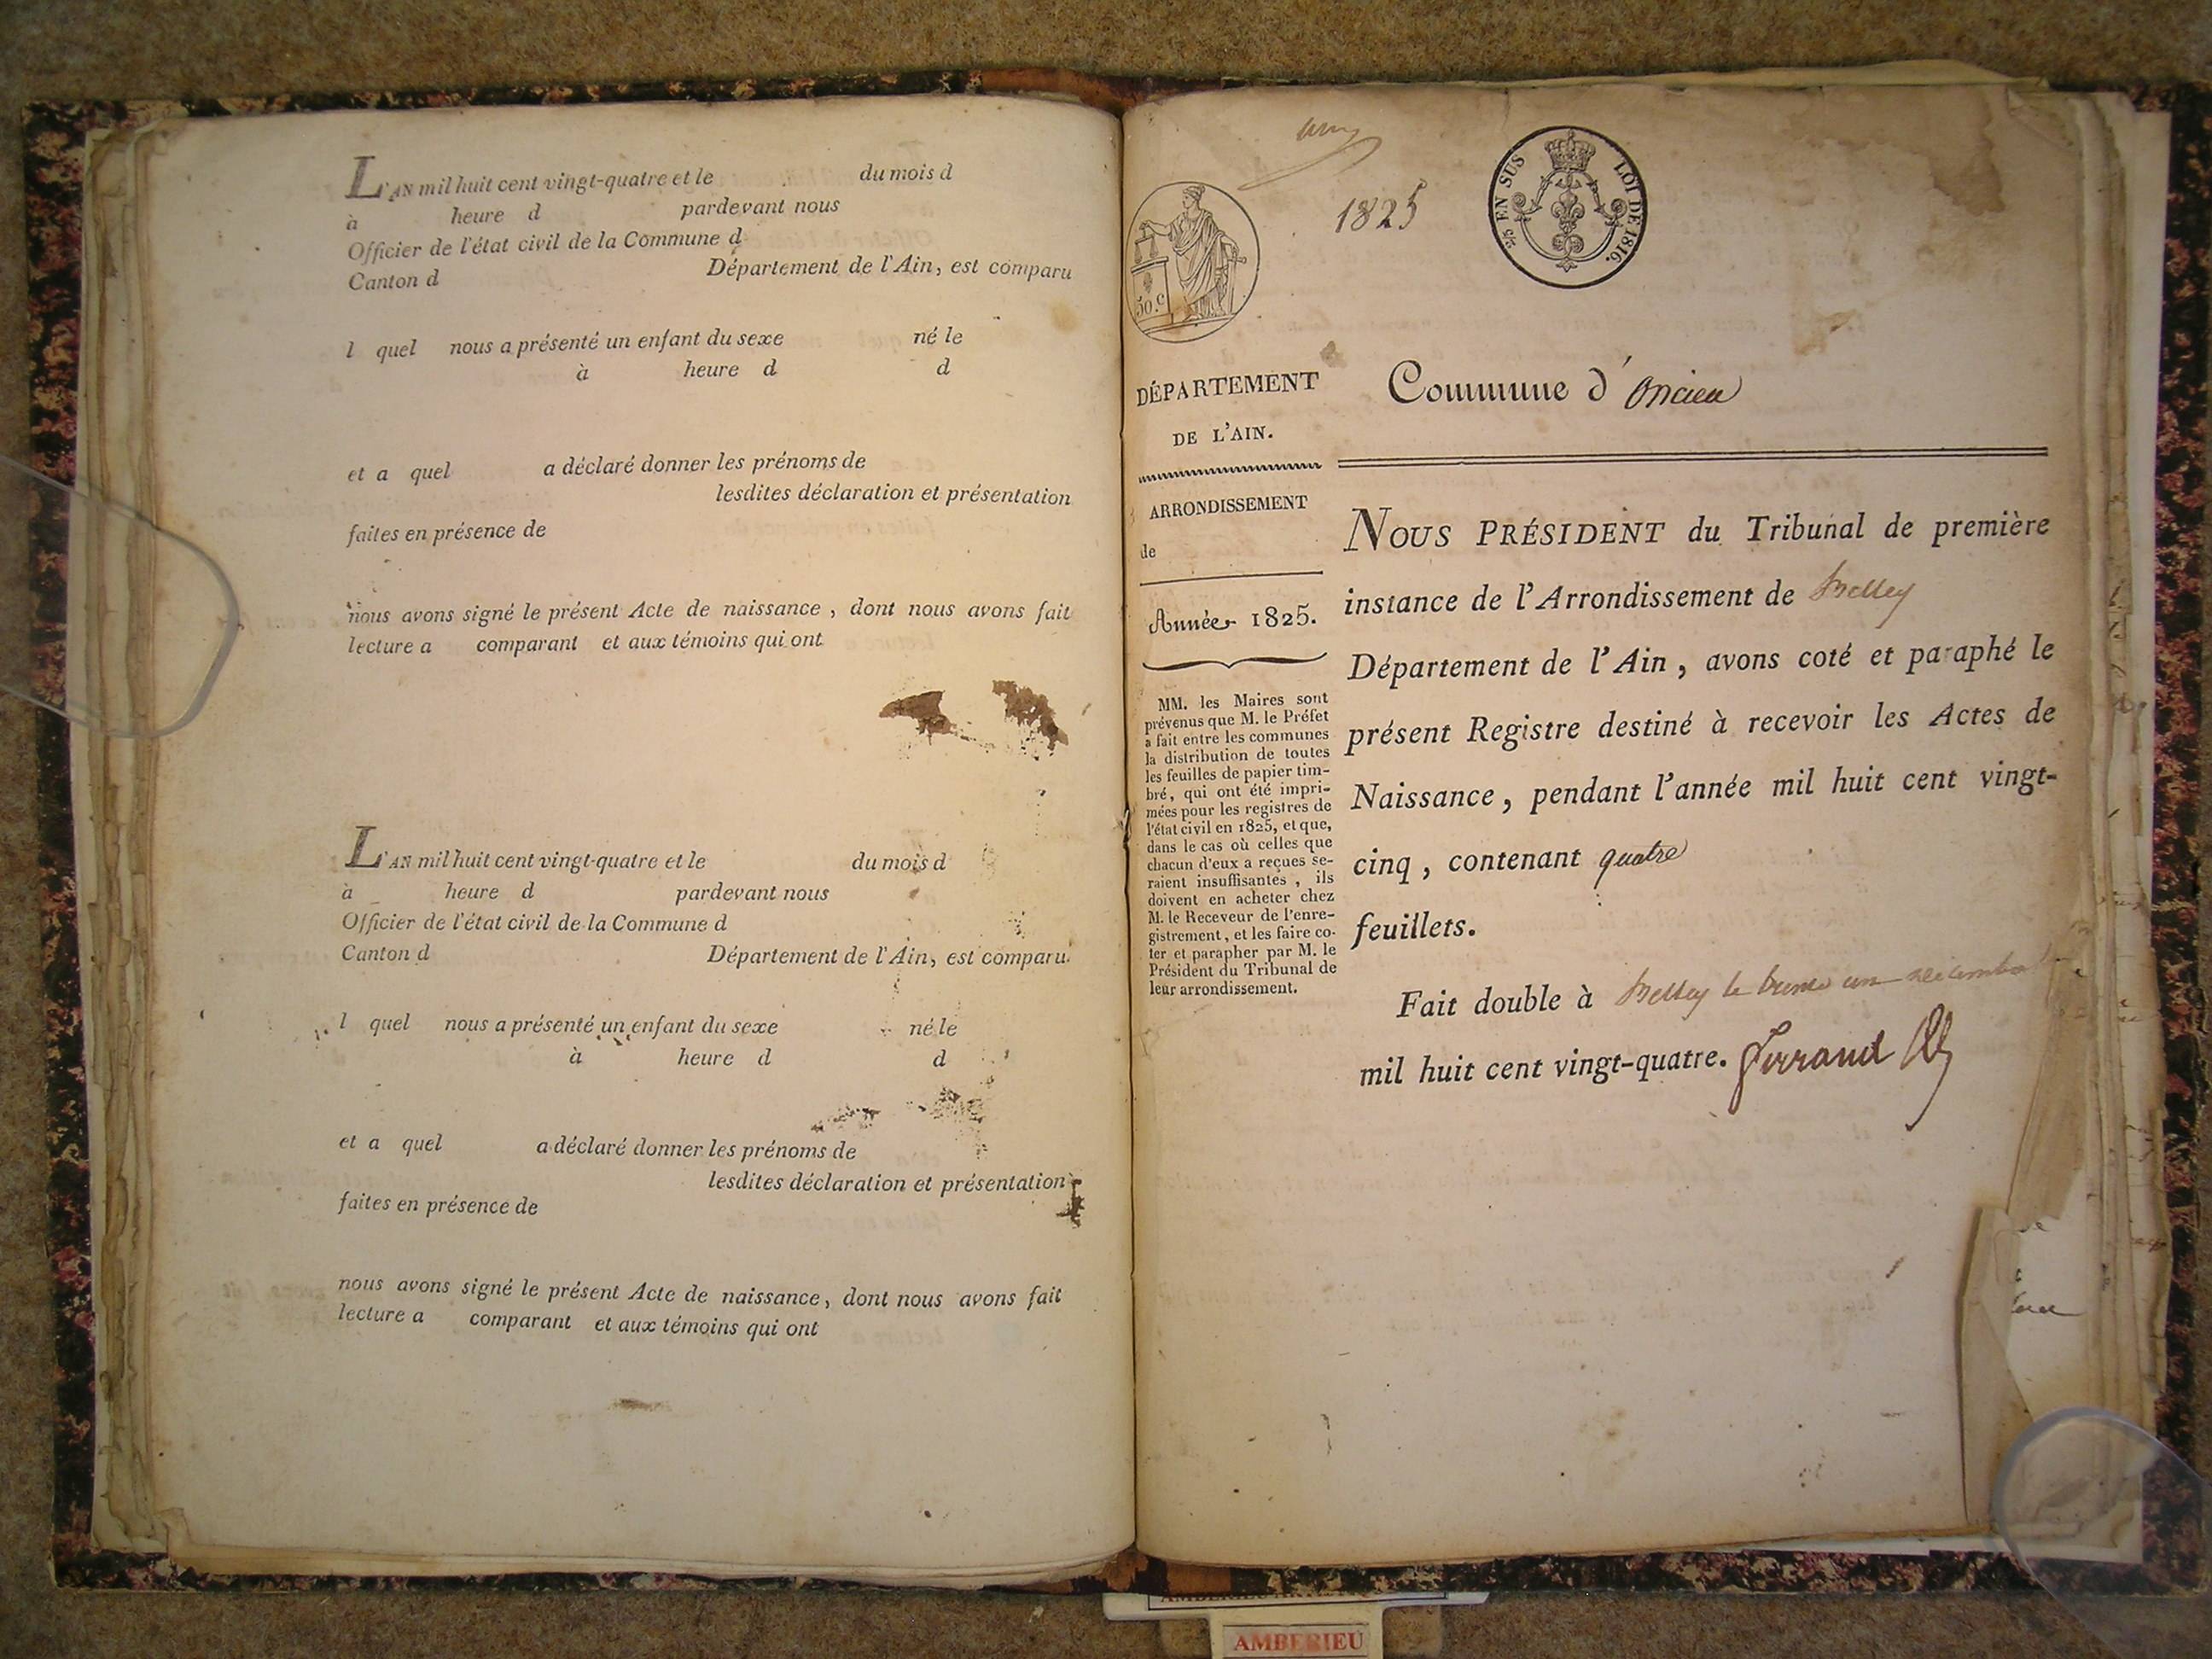 L'AN mil huit cent vingt-quatre et le du mois d
à heure d pardevant nous
Officier de l'état civil de la Commune d
Canton d Département de l'Ain, est comparu
l quel nous a présenté un enfant du sexe né le
à heure d d
et a quel a déclaré donner les prénoms de
lesdites déclaration et présentation
faites en présence de
nous avons signé le présent Acte de naissance, dont nous avons fait
lecture a comparant et aux témoins qui ont
L'AN mil huit cent vingt-quatre et le du mois d
à heure d pardevant nous
Officier de l'état civil de la Commune d
Canton d Département de l'Ain, est comparu
l quel nous a présenté un enfant du sexe né le
à heure d d
et a quel a déclaré donner les prénoms de
lesdites déclaration et présentation
faites en présence de
nous avons signé le présent Acte de naissance, dont nous avons fait
lecture a comparant et aux témoins qui ont
1825
EN SUS LOI DE 1816.
50.c
DÉPARTEMENT
DE L'AIN.
ARRONDISSEMENT
de
Année 1825.
MM. les Maires sont
prévenus que M. le Préfet
a fait entre les communes
la distribution de toutes
les feuilles de papier tim-
bré, qui ont été impri-
mées pour les registres de
l'état civil en 1825, et que,
dans le cas où celles que
chacun d'eux a reçues se-
raient insuffisantes, ils
doivent en acheter chez
M. le Receveur de l'enre-
gistrement, et les faire co-
ter et parapher par M. le
Président du Tribunal de
leur arrondissement.
Commune d'oncieu
NOUS PRÉSIDENT du Tribunal de première
instance de l'Arrondissement de Belley
Département de l'Ain, avons coté et paraphé le
présent Registre destiné à recevoir les Actes de
Naissance, pendant l'année mil huit cent vingt-
cinq, contenant quatre
feuillets.
Fait double à Belley le trente un décembre
mil huit cent vingt-quatre. Ferrand
AMBERIEU